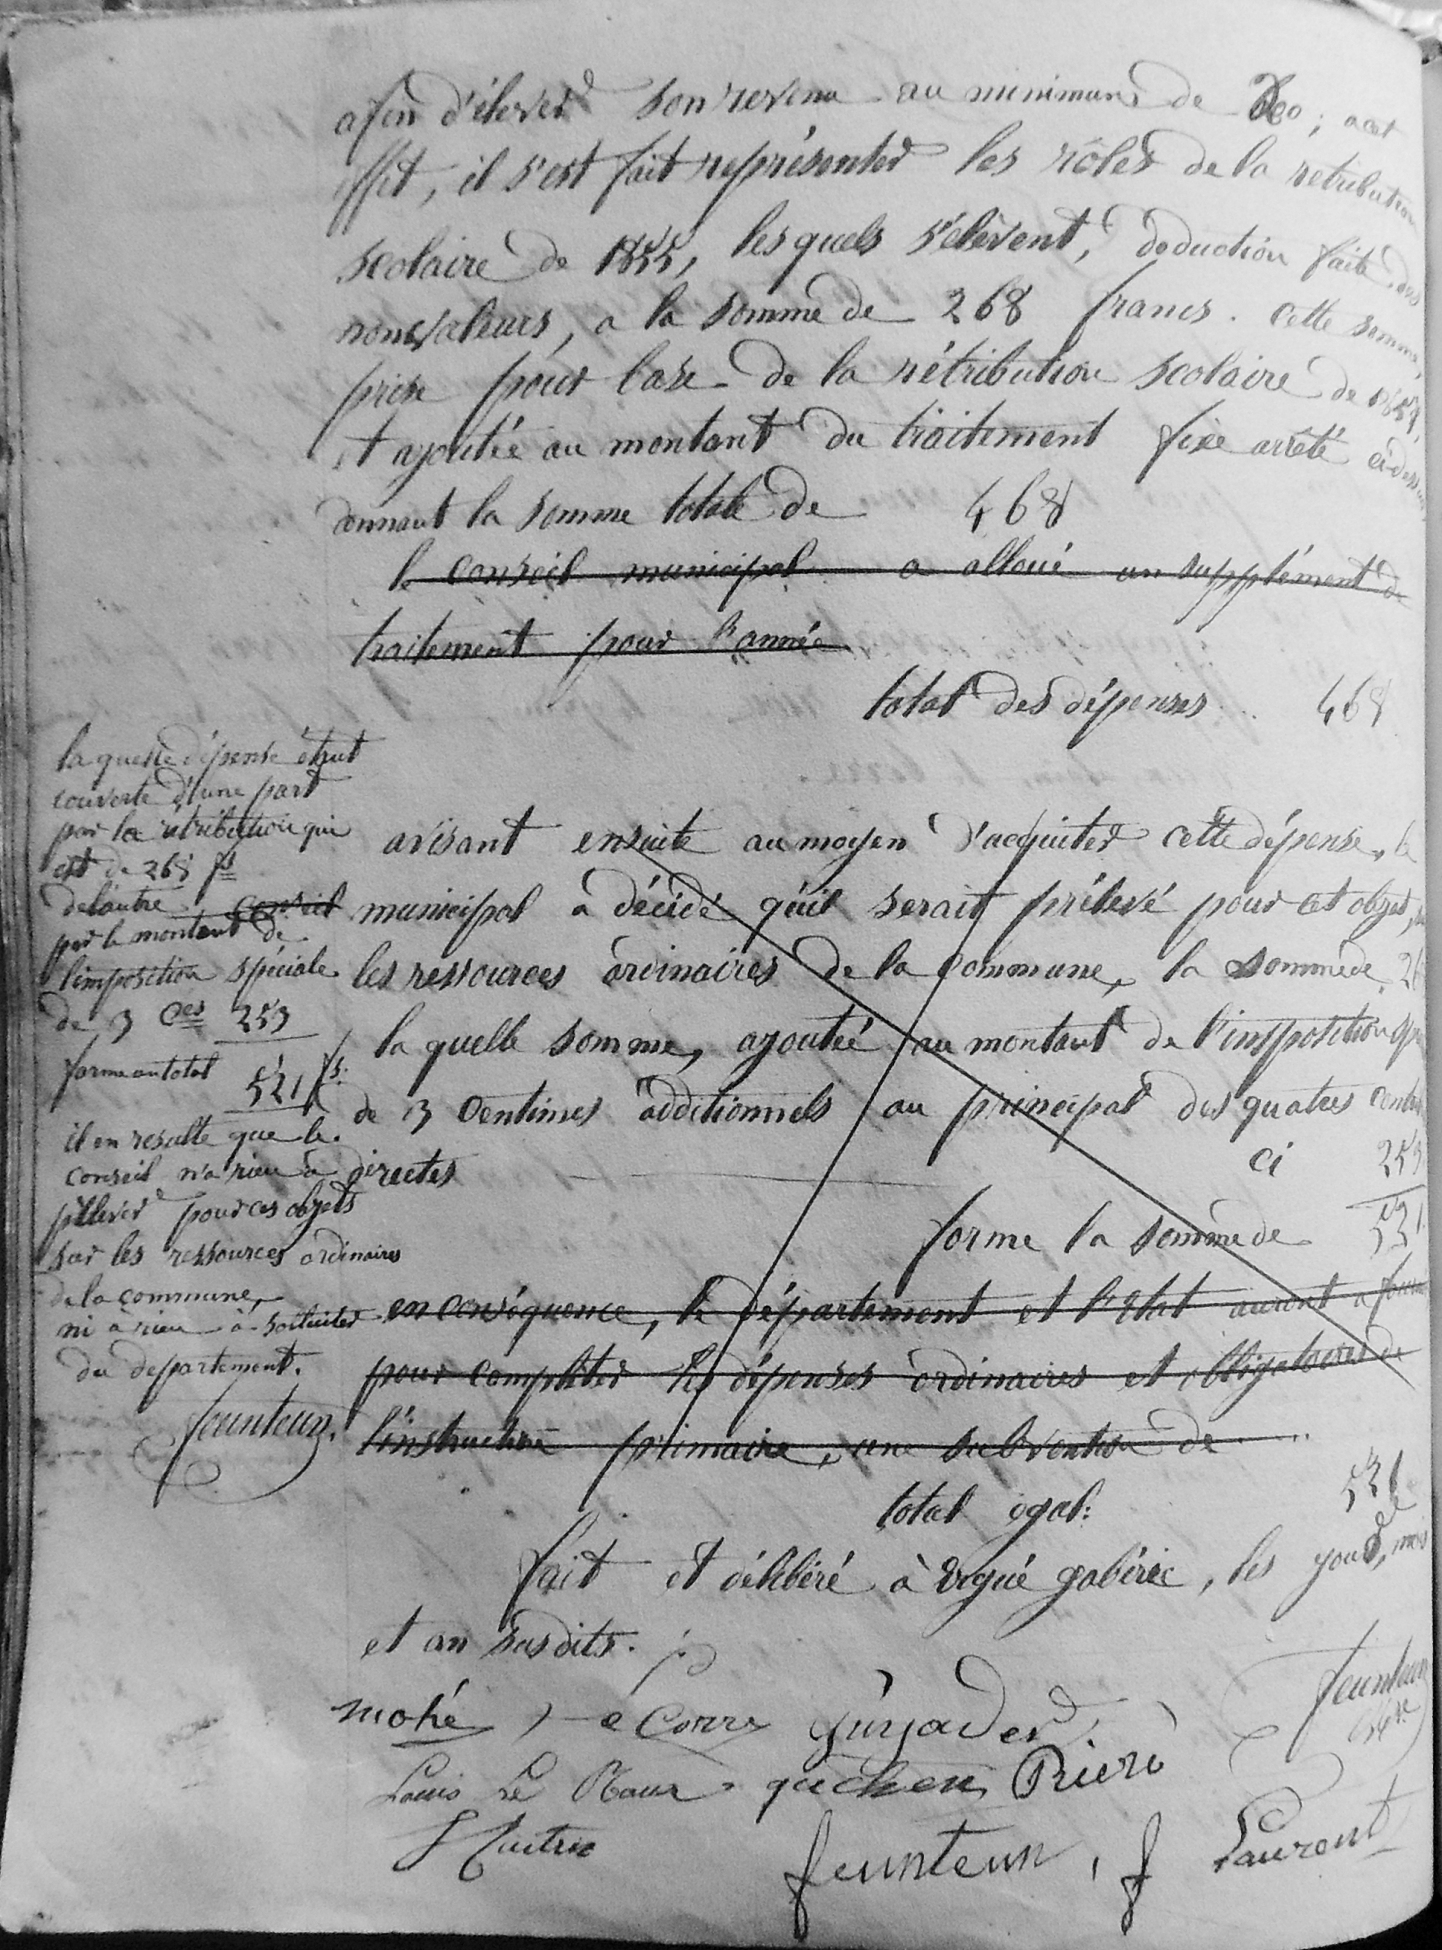 afin d'élever son revenu au minimum de ; a cet
effet, il s'est fait représenter les rôles de la retribution
scolaire de 1855, les quels s'élèvent, deduction faite des
nonvaleurs, a la somme de 268 francs. cette somme,
prise pour base de la rétribution scolaire de
et ajoutée au montant du traitement fixe arrêté ci dessus
donnant la somme totale de 468
le conseil municipal a alloué un supplément de
traitement pour l'année
total des dépenses .. 468
la quelle dépense étant
couverte d'une part
par la rétribution qui
est de 268 fs
de l'autre
par le montant de
l'imposition spéciale
de 3 ces 253
forme au total 521 fs.
il en resulte que le
conseil n'a rien à
prélever pour ces objets
sur les ressources ordinaires
de la commune,
ni à rien à soliciter
du departement.
feunteun.
avisant ensuite au moyen d'acquiter cette dépense, le
conseil municipal à décidé qu'il serait prélevé pour cet objet,
les ressources ordinaires de la commune, la somme de
la quelle somme, ajoutée au montant de l'imposition
de 3 centimes additionnels au principal des quatres
directes ci 253
forme la somme de 521
en conséquence, le département et l'etat auront a
pour completer les dépenses ordinaires et obligatoires de
l'instruction primaire, une subvention de ...
total egal: 521
fait et délibéré à Ergué gabéric, les jour, mois
et an susdits.
mahé Le Corre Guyader feunteun
Louis Le guichen Rieri
feunteun, f Laurent